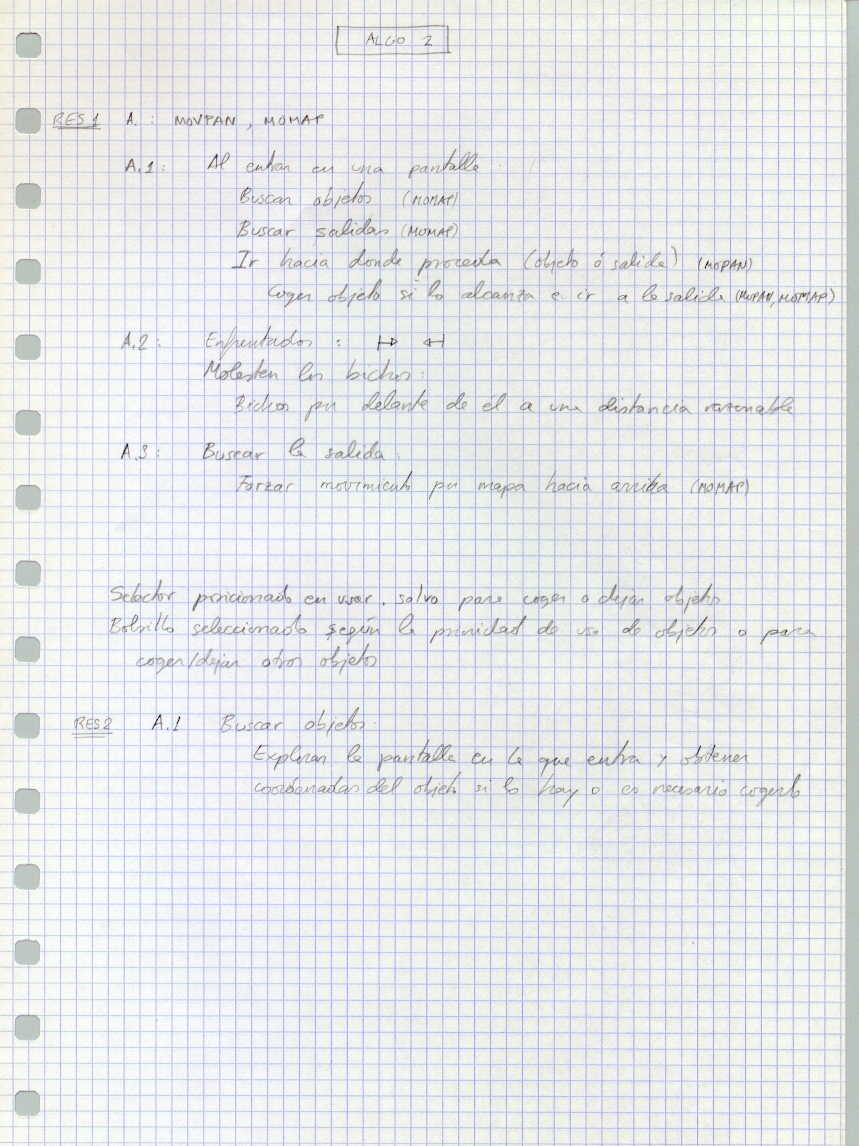 ALGO 2
RES1 A. : MOVPAN, MOMAP
A.1: Al entrar en una pantalla.
Buscar objetos (MOMAP)
Buscar salidas (MOMAP)
Ir hacia donde proceda (objeto ó salida) (MOPAN)
Coger objeto si lo alcanza e ir a la salida (MOPAN, MOMAP)
A.2: Enfrentados :
Molesten los bichos:
Bichos por delante de él a una distancia razonable
A.3: Buscar la salida.
Forzar movimiento por mapa hacia arriba (MOMAP)
Selector posicionado en usar, salvo para coger o dejar objetos
Bolsillo seleccionado según la prioridad de uso de objetos o para
coger/dejar otros objetos
RES2 A.1 Buscar objetos.
Explorar la pantalla en la que entra y obtener
coordenadas del objeto si lo hay o es necesario cogerlo